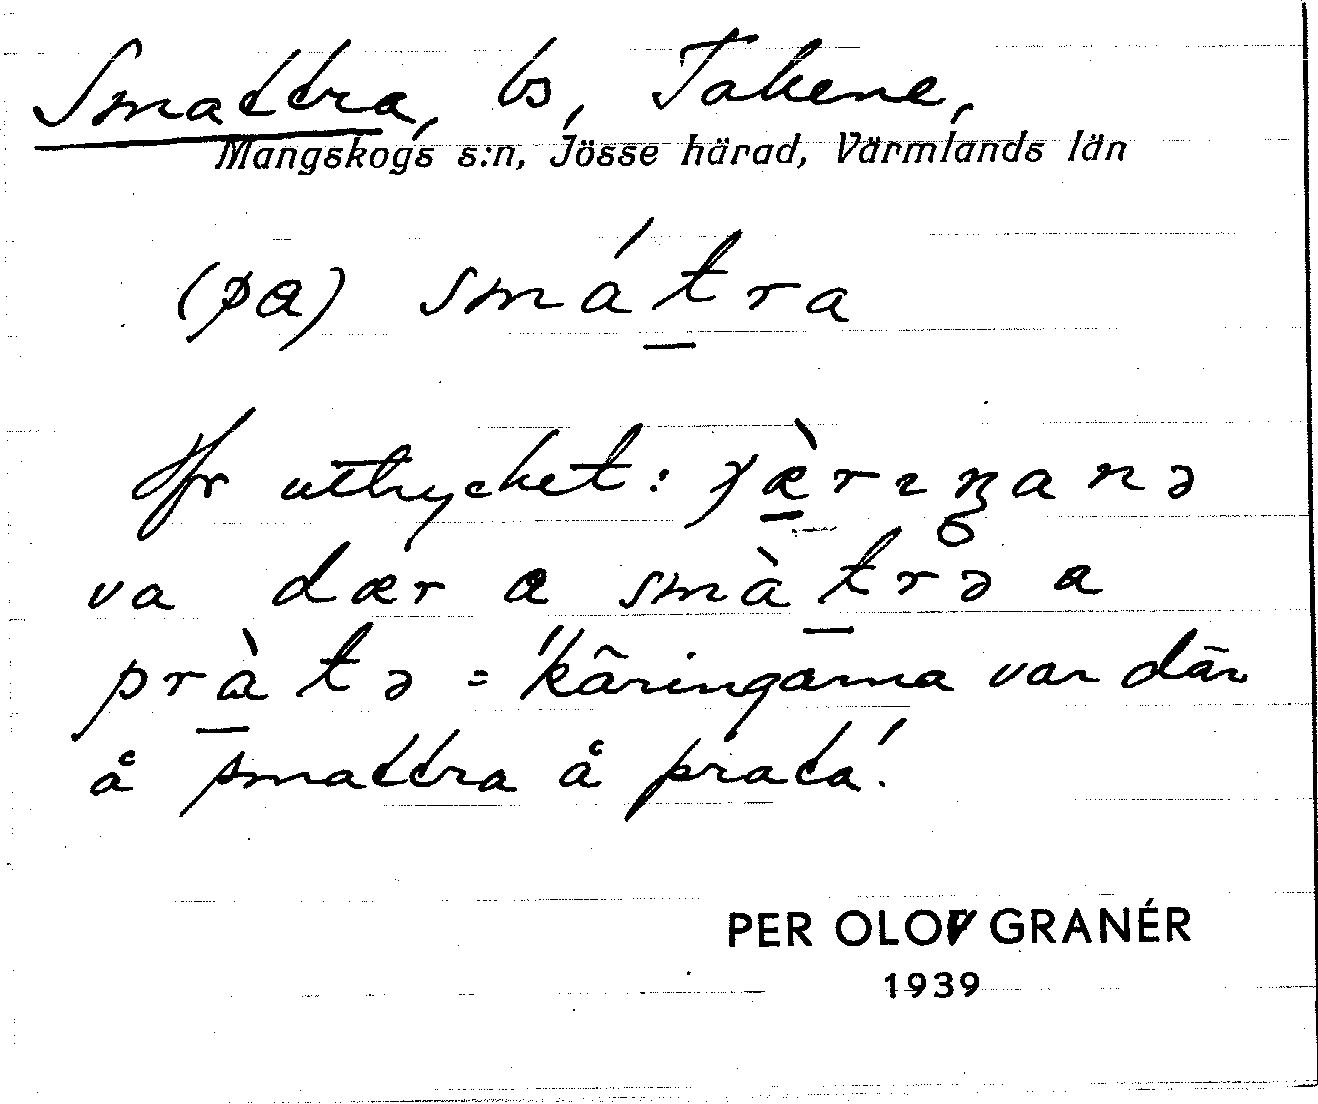 Smattra, bs, Takene,
Mangskogs s:n, Jösse härad, Värmlands län
(pa) smátra
Jfr uttrycket:
va dær a smàtrə a
pràtə = "käringarna var där
å smattra å prata!
PER OLOV GRANÉR
1939